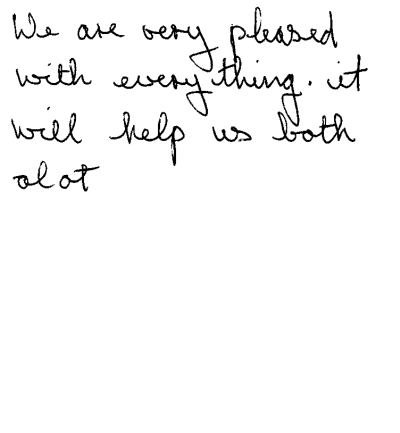 We are very pleased
with every thing. it
will help us both
alot